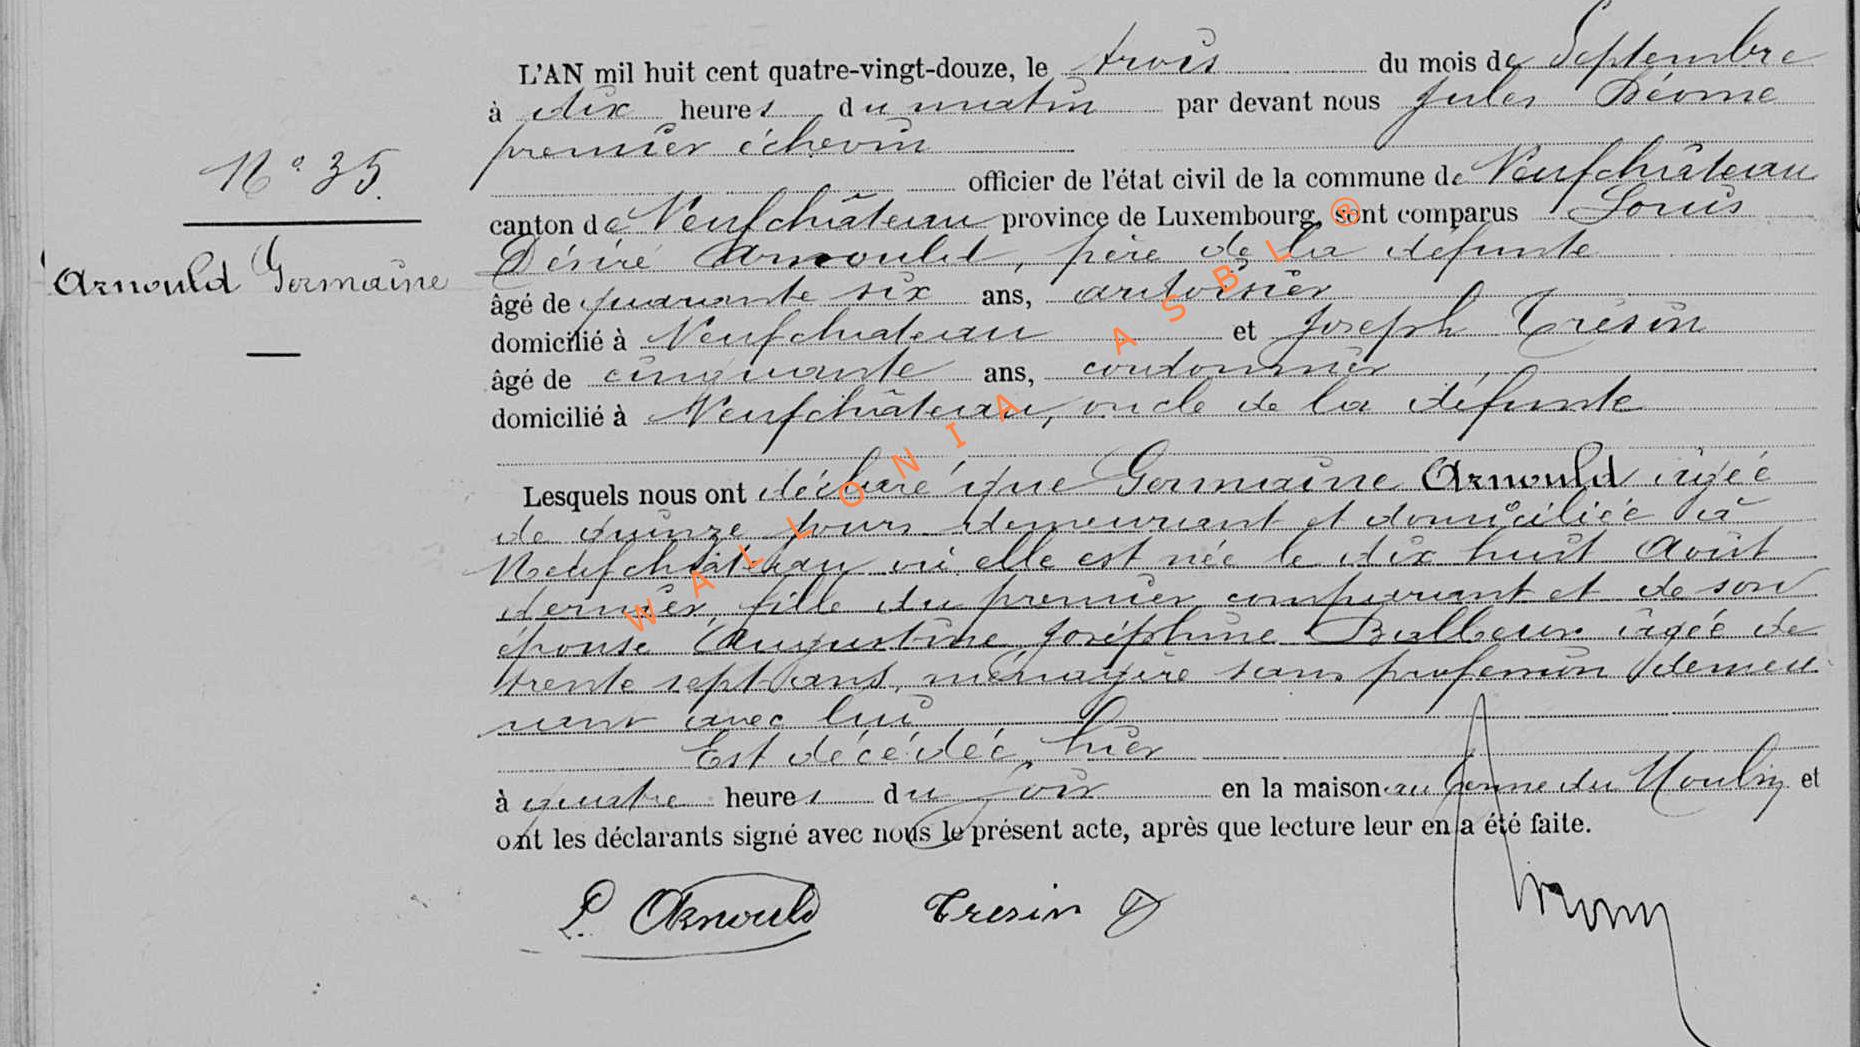 L'AN mil huit cent quatre-vingt-douze, le trois du mois de Septembre
à dix heures du matin par devant nous Jules
premier échevin
N° 35.
officier de l'état civil de la commune de Neufchâteau
canton de Neufchâteau province de Luxembourg, sont comparus Louis
Désiré Arnould, père de la défunte
Arnould Germaine
âgé de quarante six ans, ardoisier
domicilié à Neufchateau et Joseph Trésin
âgé de cinquante ans, cordonnier
domicilié à Neufchâteau, oncle de la défunte
Lesquels nous ont déclaré que Germaine Arnould âgée
de quinze jours demeurant et domiciliée à
Neufchâteau où elle est née le dix huit Août
dernier, fille du premier comparant et de son
épouse Augustine Joséphine âgée de
trente sept ans, ménagère sans profession demeu
rant avec lui
Est décédée hier
à quatre heures du soir en la maison au Terme du Moulin et
ont les déclarants signé avec nous le présent acte, après que lecture leur en a été faite.
L. Arnould Tresin J
WALLONIA ASBL ®